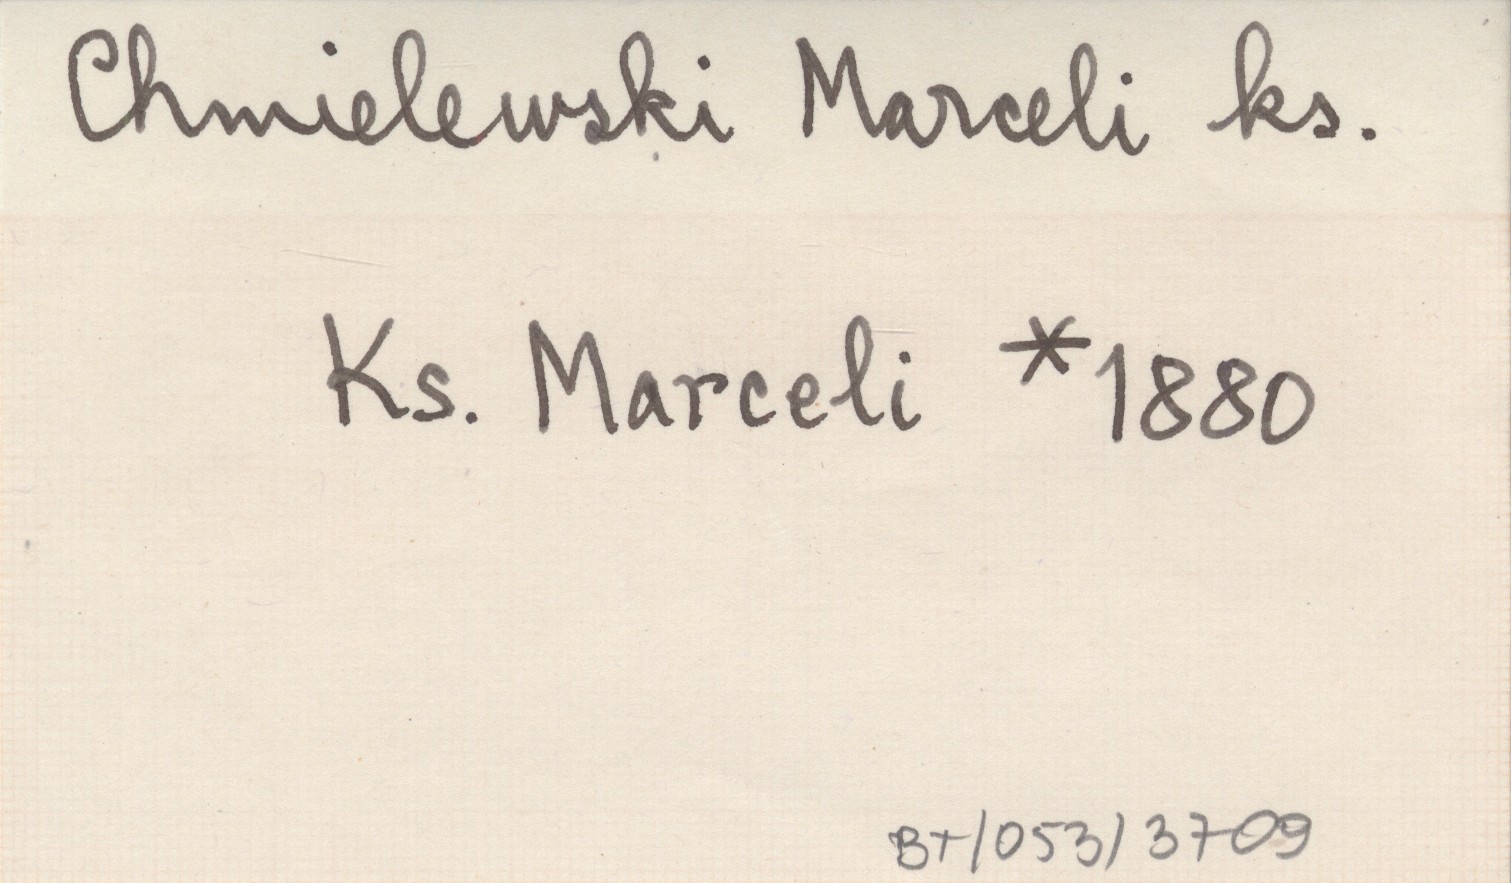 Chmielewski Marceli ks.
Ks. Marceli *1880
BT/053/3709